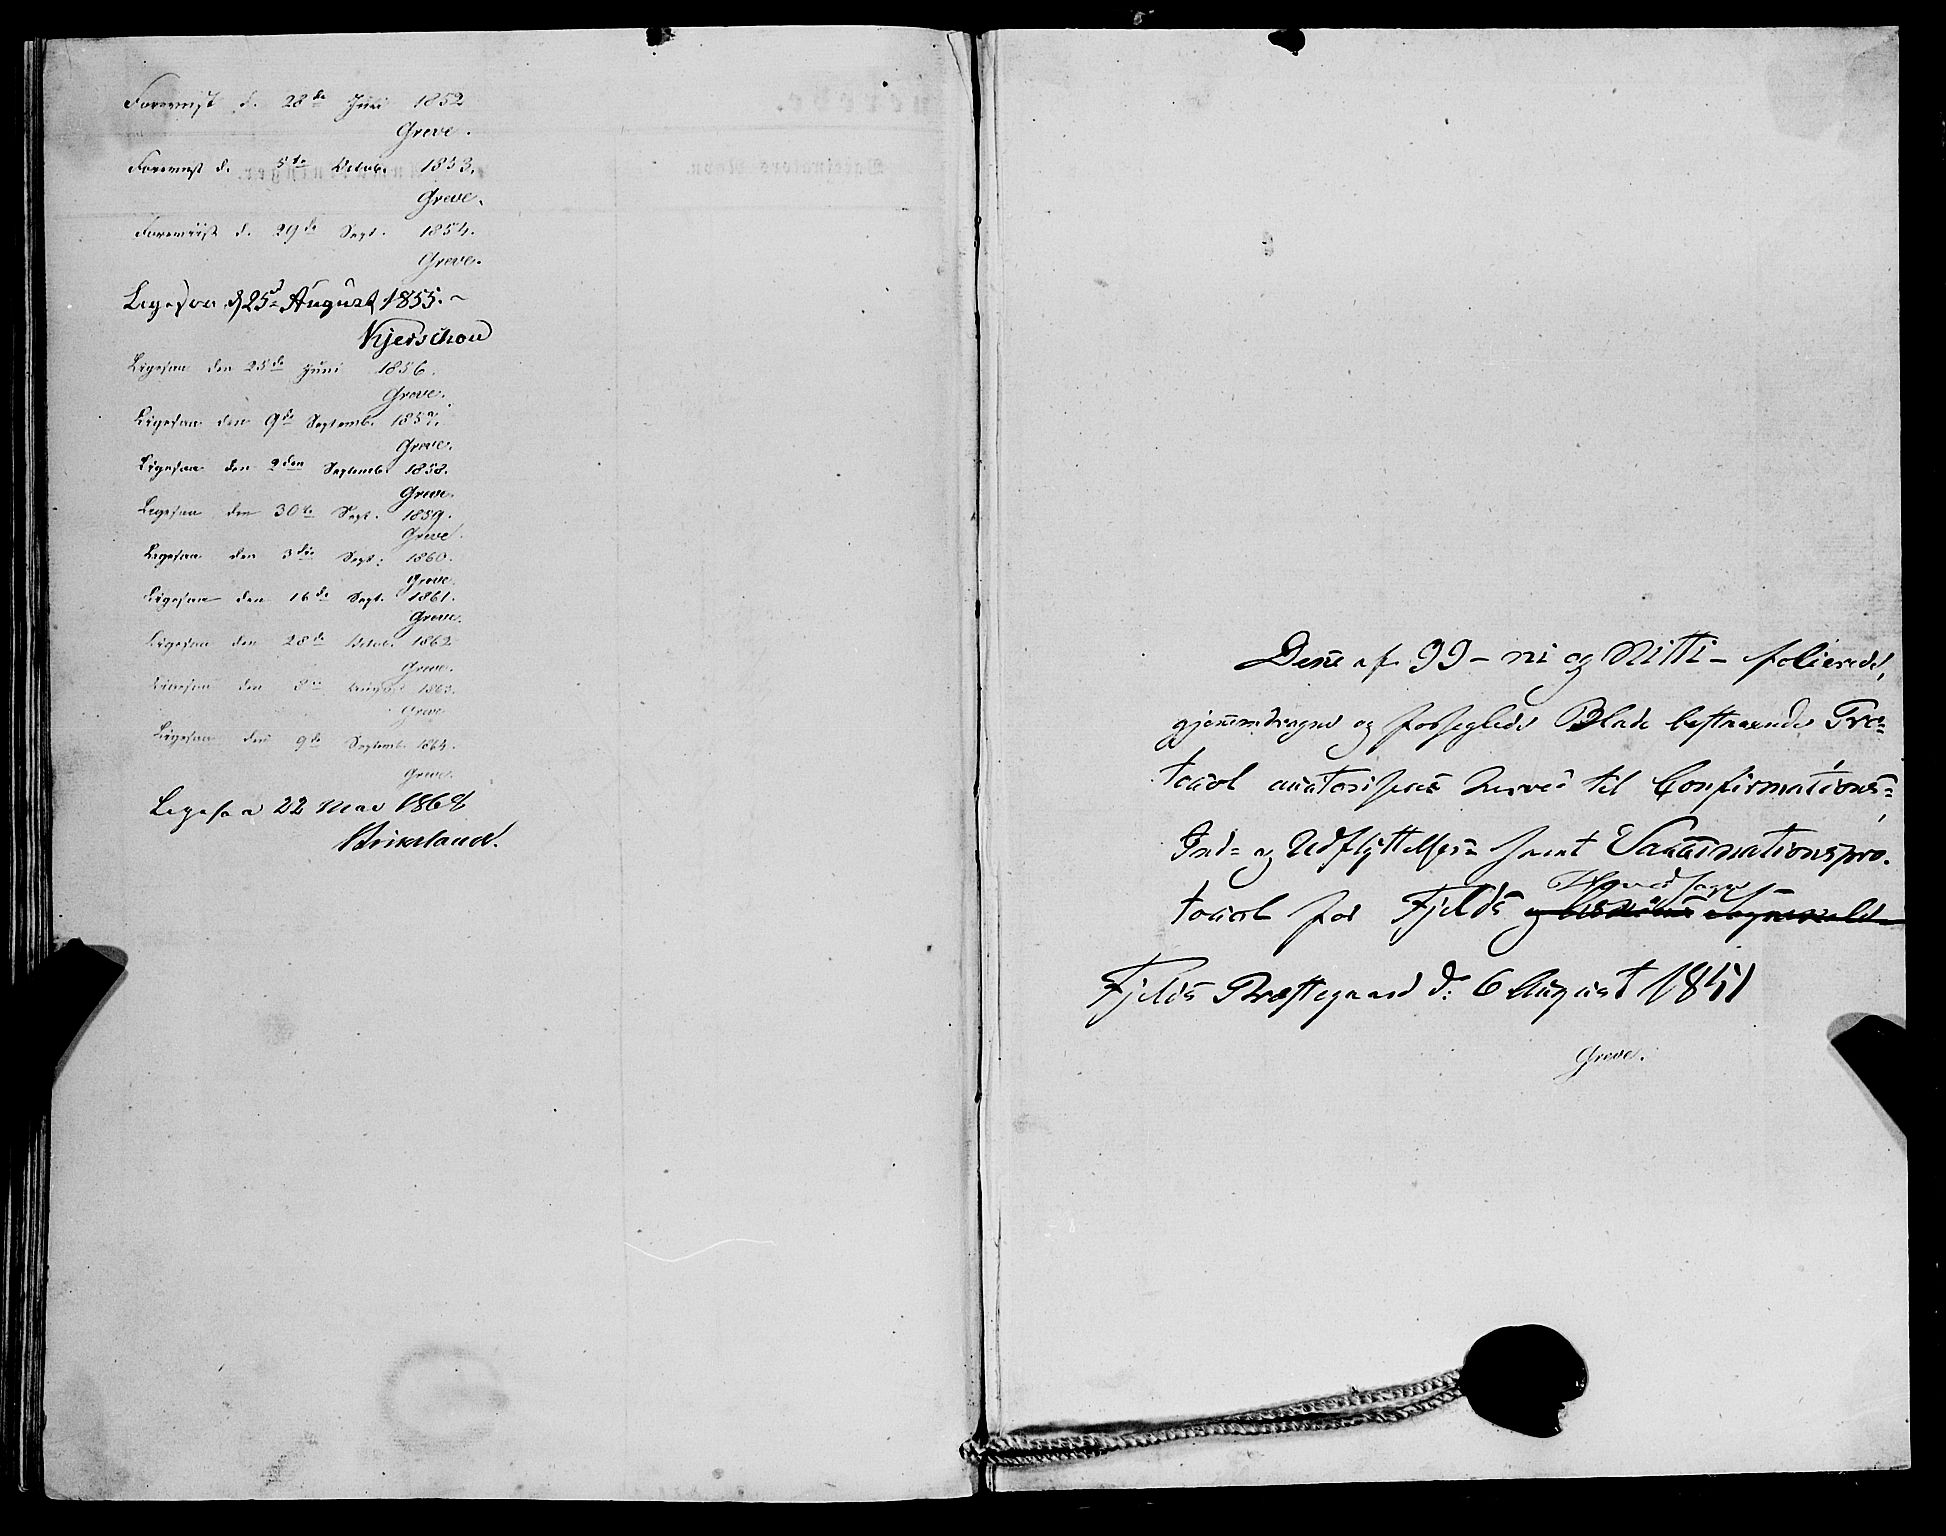 Foreviist d. 28de Juni 1852
Greve.
Foreviist d. 5te Octob. 1853.
Greve.
Foreviist d. 29de Sept. 1854.
Greve.
Ligesaa d 25d August 1855.
Kjerschou
Ligesaa den 25de Juni 1856.
Greve.
Ligesaa den 9de Septemb. 1857.
Greve.
Ligesaa den 2den Septemb. 1858.
Greve.
Ligesaa den 30te Sept. 1859.
Greve.
Ligesaa den 3die Sept. 1860.
Greve.
Ligesaa den 16de Sept. 1861.
Greve.
Ligesaa den 28de Octob. 1862
Greve.
Ligesaa den August 1863.
Greve
Ligesaa den 9de Septemb. 1864.
Greve.
Ligesaa 22 Mai 1868
Denne af 99 - ni og Nitti - folierede,
gjennemdragne og forseglede Blade bestaaende Pro-
tocol auctoriseres herved til Confirmations-
Ind- og Udflyttelses- samt Vaccinationspro-
tocol for Fjelds Hovedsogn
Fjelds Præstegaard d: 6 August 1851
Greve.